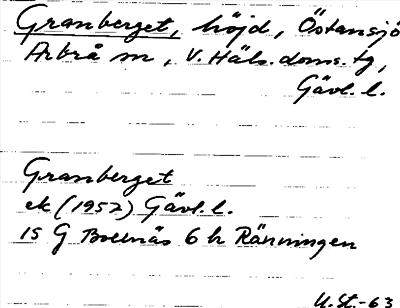 Granberget, höjd, Östansjö
Arbrå sn, V. Häls. doms. tg,
Gävl. l.
Granberget
ek (1957) Gävl. l.
15 G Bollnäs 6 h Ränningen
U. St. -63